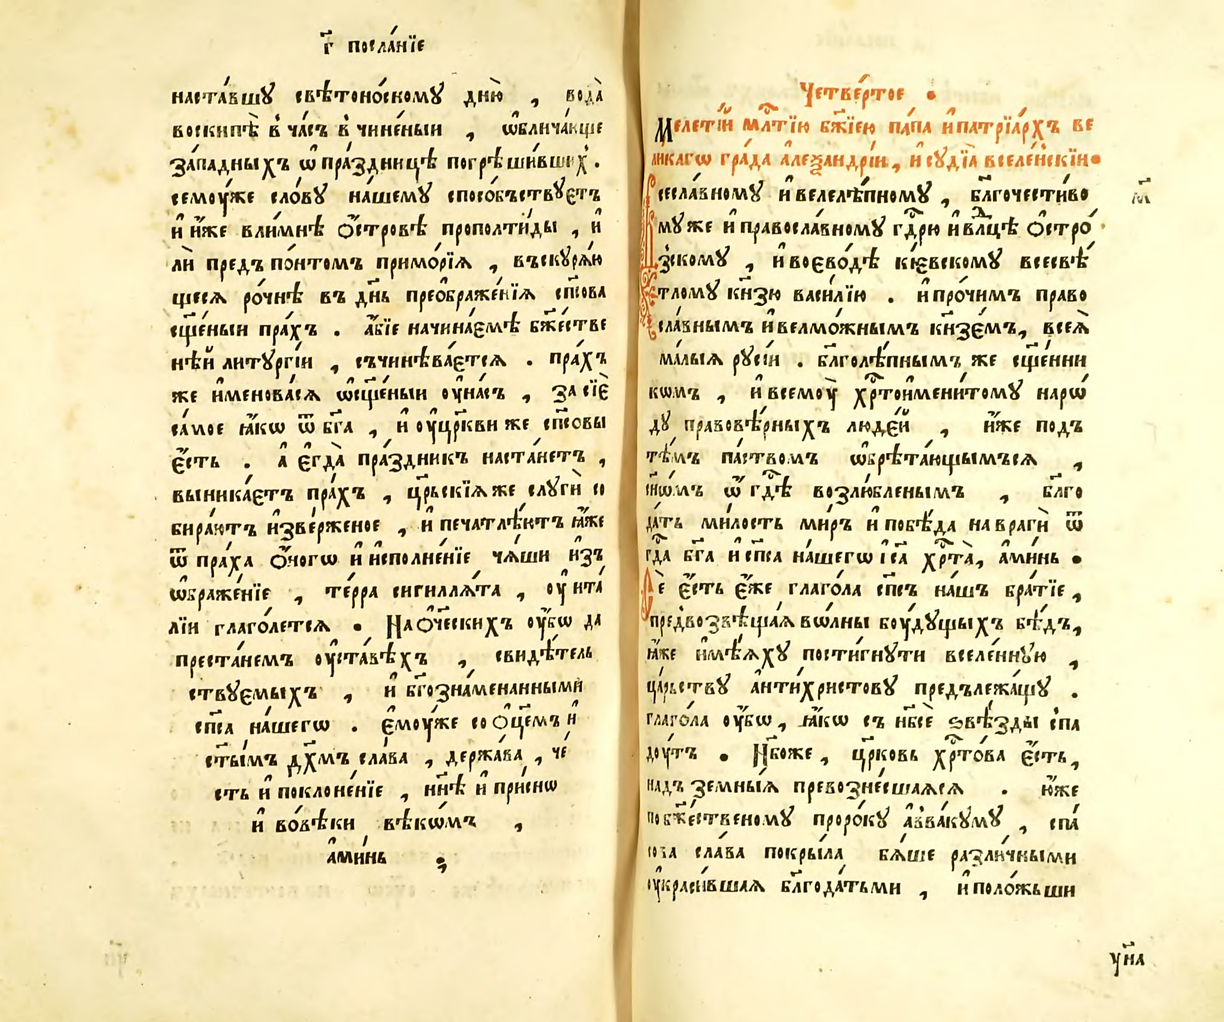 г҃ посла́нїе
наста́вшꙋ свѣтоно́сномꙋ дню̀ , вода̀
воскипѣ̀ в҆ ча́съ в҆ чине́ныи , ѡ҆блича́юще
за́падныхъ ѡ҆ пра́здницѣ погрѣши́вших̾ .
семоу́же сло́вꙋ на́шемꙋ спосо́бъствꙋетъ
и҆ и҆́же в ли́мнѣ ѻ҆́стровѣ прополти́ды , и҆
лѝ пред̾ по́нтомъ примо́рїѧ , въскꙋрѧ́ю
щесѧ ро́чнѣ въ дн҃ь преѡбраже́нїѧ сп҃сова
сщ҃е́ныи пра́хъ . а҆́бїе начина́емѣ бж҃е́стве
нѣ́й литꙋргі́и , съчинѣва́етсѧ . пра́хъ
же и҆менова́сѧ ѡ҆сщ҃е́ныи оу҆ на́съ , за сїѐ
са́мое ꙗ҆́кѡ ѿ бг҃а , и҆ оу҆ цр҃кви же сп҃совы
є҆́сть . а҆ є҆гда̀ пра́здникъ наста́нетъ ,
выника́етъ пра́хъ , цр҃ьскїѧ же слꙋгѝ со
бира́ютъ и҆зве́рженое , и҆ печатлѣ́ютъ ꙗ҆́же
ѿ пра́ха ѻ҆́ногѡ и҆ и҆сполне́нїе ча́ши и҆зъ
ѡ҆браже́нїе , те́рра сигиллѧ́та , оу҆ ита́
лїи глаго́летсѧ . На ѻ҆те́ческихъ оу҆́бѡ да
преста́немъ оу҆ста́вѣхъ , свидѣ́тель
ствꙋемыхъ , и҆ бг҃озна́менанными
сп҃са на́шегѡ . є҆моу́же со ѻ҆ц҃е́мъ и҆
ст҃ы́мъ дх҃мъ сла́ва , держа́ва , че́
сть и҆ поклоне́нїе , нн҃ѣ и҆ при́снѡ
и҆ во́вѣки вѣ́кѡмъ ,
а҆ми́нь
Четве́ртое .
Меле́тїй мл҃тїю бж҃їею па́па и҆ патрїа́рхъ ве
ликагѡ гра́да а҆леѯандрі́и , и҆ сꙋдїа̀ вселе́нскїи .
сесла́вномꙋ и҆ велелѣ́пномꙋ , бл҃гочести́во
мꙋ же и҆ правосла́вномꙋ гдрю и҆ влдцѣ ѻ҆стро́
зскомꙋ , и҆ воево́дѣ кі́евскомꙋ всесвѣ́
тломꙋ кн҃зю васи́лїю . и҆ про́чимъ право
сла́внымъ и҆ велмо́жнымъ кн҃зе́мъ , всеѧ̀
ма́лыѧ рꙋсі́и . бл҃голѣ́пнымъ же сщ҃е́нни
кѡмъ , и҆ всемоу̀ хрⷭ҇тои҆мени́томꙋ наро́
дꙋ правовѣ́рныхъ люде́й , и҆́же под̾
тѣ́мъ па́ствомъ ѡ҆брѣта́ющымъсѧ ,
сн҃ѡ́мъ ѡ҆ гдⷭ҇ѣ возлю́бленымъ , бл҃го
да́ть ми́лость ми́ръ и҆ побѣ́да на врагѝ ѿ
гдⷭ҇а бг҃а и҆ сп҃са на́шегѡ і҆с҃а хрⷭ҇та̀ , а҆ми́нь .
Сѐ є҆́сть є҆́же глаго́ла сп҃съ на́шъ бра́тїе ,
предвозвѣща́ѧ вѡ́лны боу́дꙋщыхъ бѣ́дъ ,
ꙗ҆́же и҆мѣ́ѧхꙋ пости́гнꙋти вселе́ннꙋю ,
ца́рьствꙋ а҆нти́христовꙋ предълежа́щꙋ .
глаго́ла оу҆́бѡ , ꙗ҆́кѡ съ нб҃сѐ ѕвѣ́зды спа
доу́тъ . Нб҃о же , цр҃ковь хрⷭ҇то́ва є҆́сть ,
над̾ земны́ѧ превозне́сшаѧсѧ . ю҆́же
по бж҃е́ственомꙋ проро́кꙋ а҆ввакꙋ́мꙋ , спа́
сова сла́ва покры́ла бѧ́ше разли́чными
оу҆краси́вшаѧ бл҃года́тьми , и҆ поло́жьши
м҃
ꙋ҆на